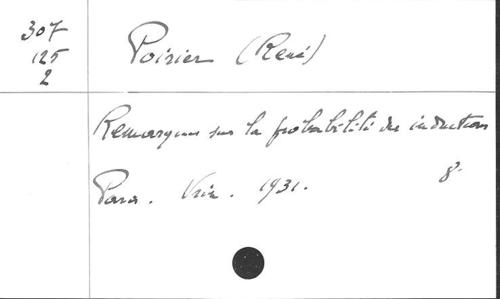 307
125
2
Poirier (René)
Remarques sur la probabilité des inductions
Paris. Vrin. 1931. 8°